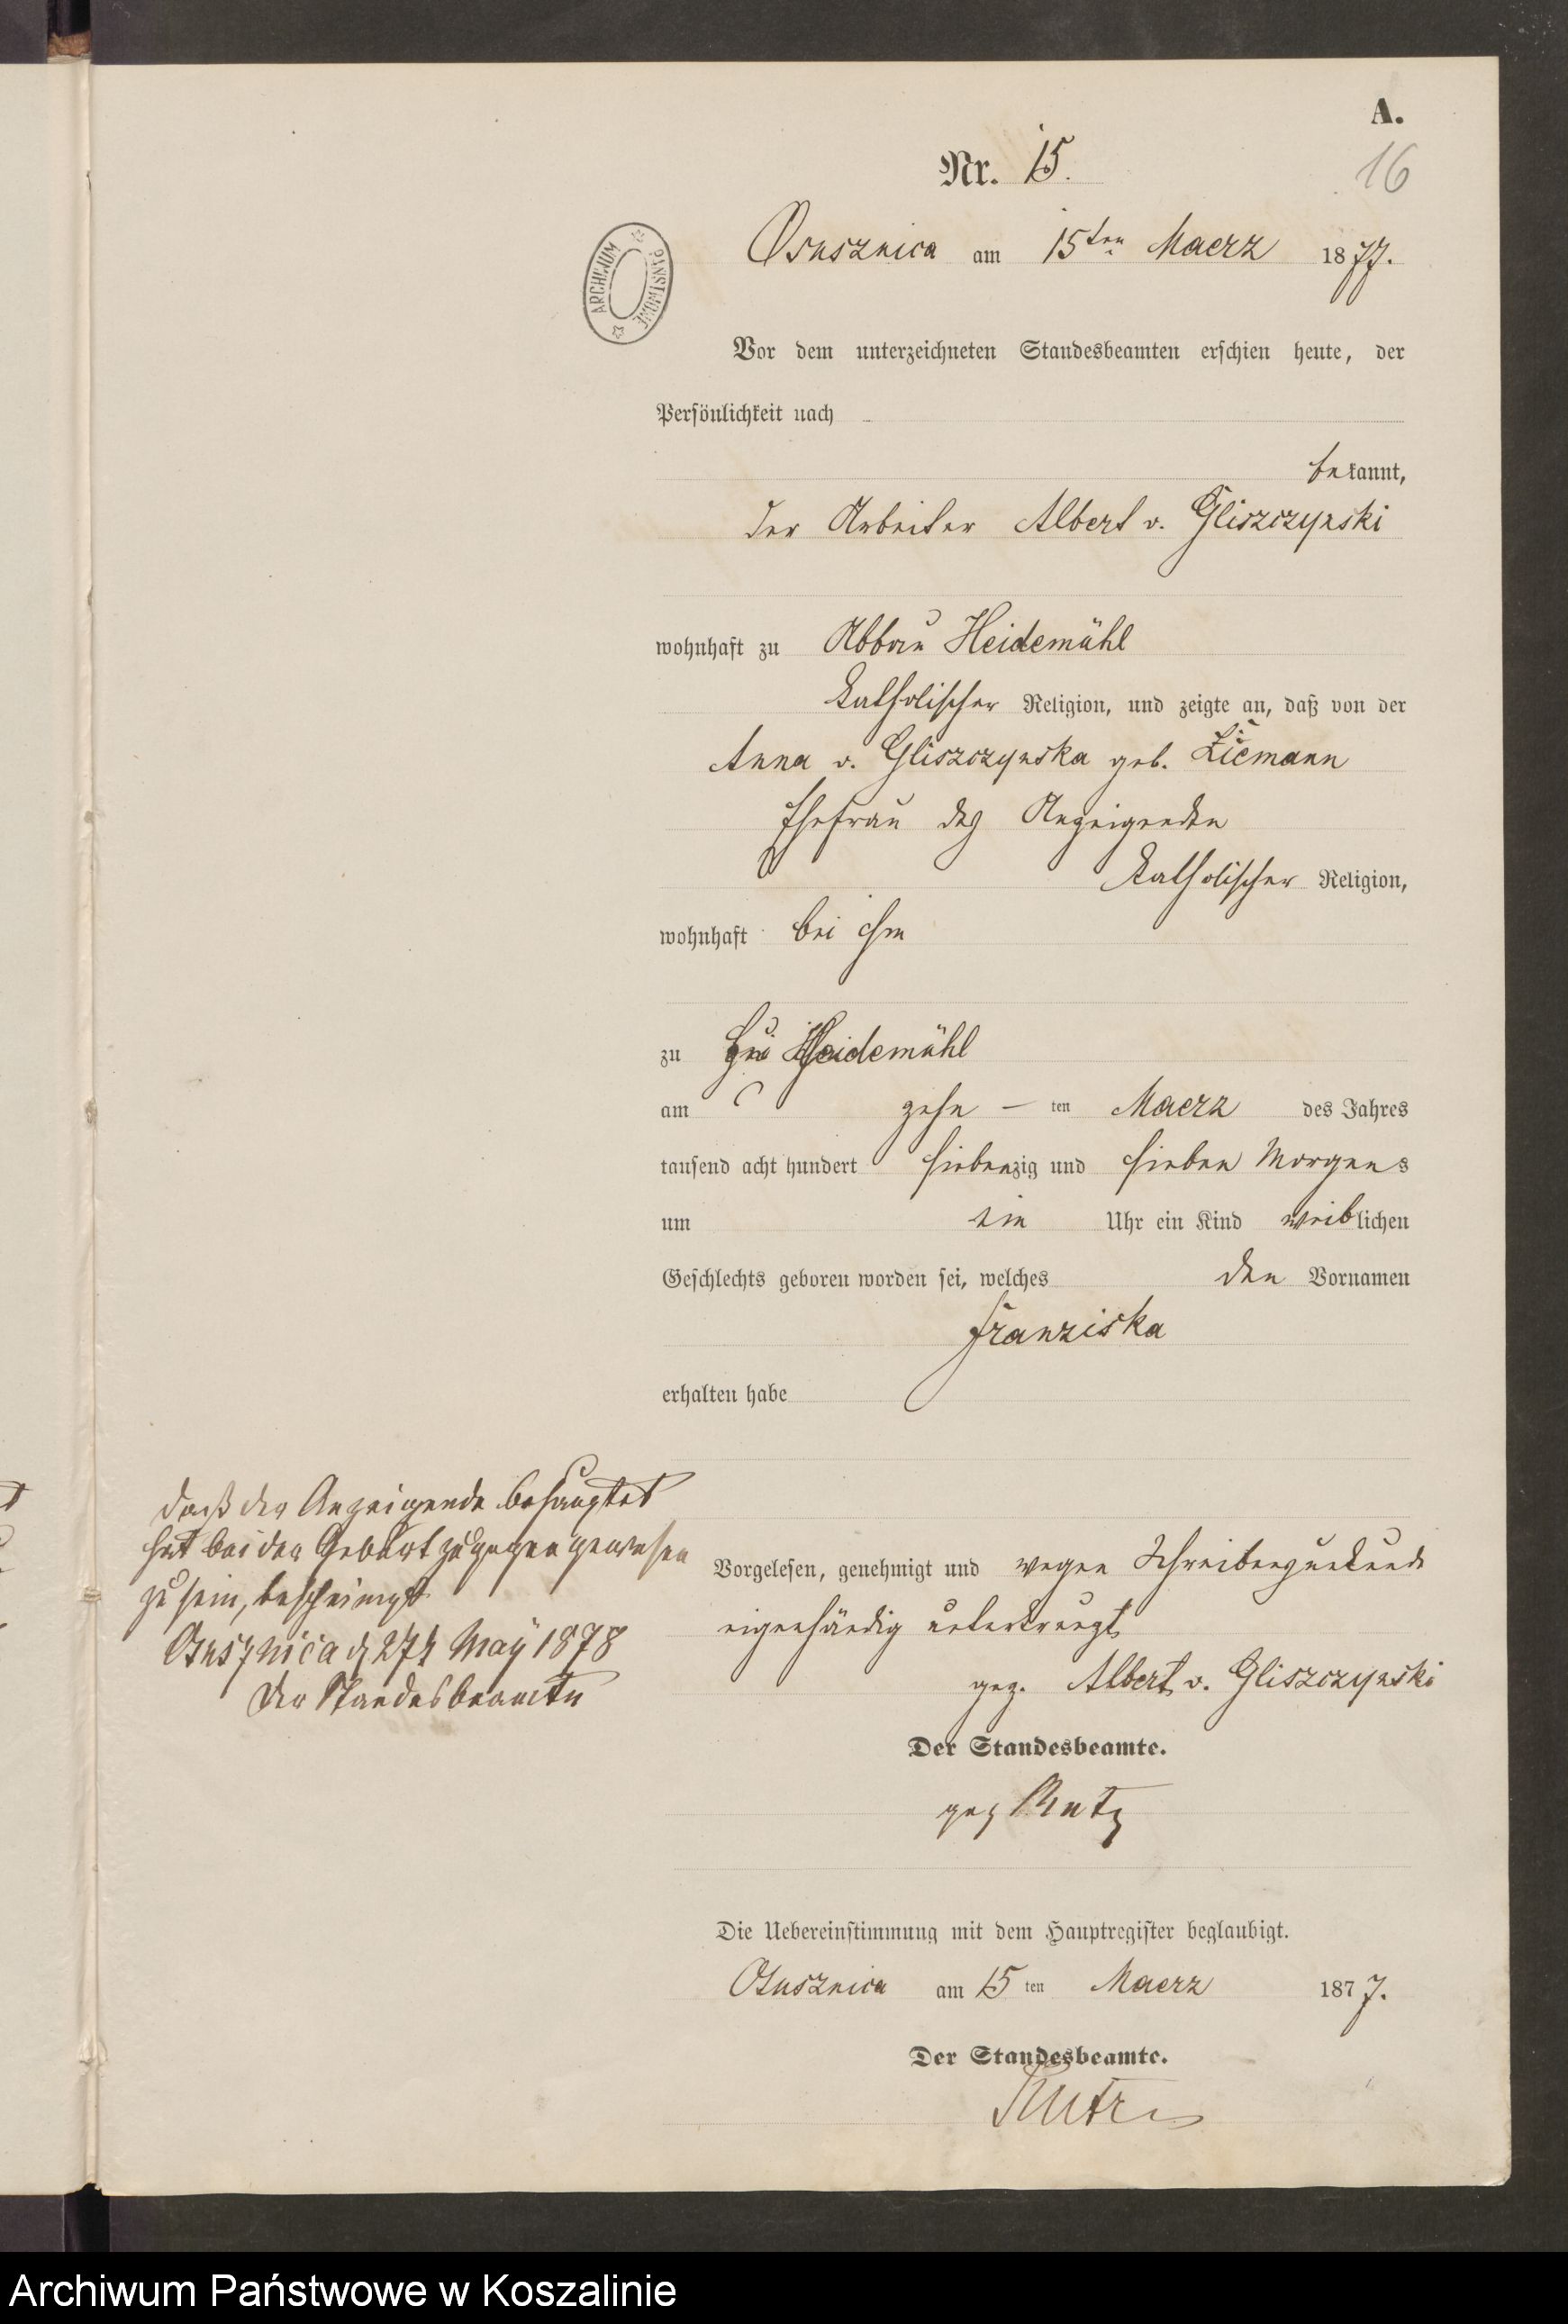 A.
Nr. 15.
16
Osusznica am 15ten Maerz 1877.
ARCHIWUM PAŃSTWOWE
Vor dem unterzeichneten Standesbeamten erschien heute, der
Persönlichkeit nach
bekannt,
der Arbeiter Albert v. Gliszczynski
wohnhaft zu Abbau Heidemühl
katholischer Religion, und zeigte an, daß von der
Anna v. Gliszczynska geb. Ziemann
Ehefrau des Anzeigenden
katholischer Religion,
wohnhaft bei ihm
zu Heidemühl
am zehn – ten Maerz des Jahres
tausend acht hundert siebenzig und sieben Morgens
um ein Uhr ein Kind weiblichen
Geschlechts geboren worden sei, welches den Vornamen
Franziska
erhalten habe
daß der Anzeigende behauptet
hat bei der Geburt zugegen gewesen
zu sein, bescheinigt
Osusznica d 27t May 1878
Der Standesbeamte
Vorgelesen, genehmigt und wegen Schreibensunkunde
eigenhändig unterkreuzt
gez. Albert v. Gliszczynski
Der Standesbeamte.
gez Rutz
Die Uebereinstimmung mit dem Hauptregister beglaubigt.
Osusznica am 15 ten Maerz 1877.
Der Standesbeamte.
Archiwum Państwowe w Koszalinie